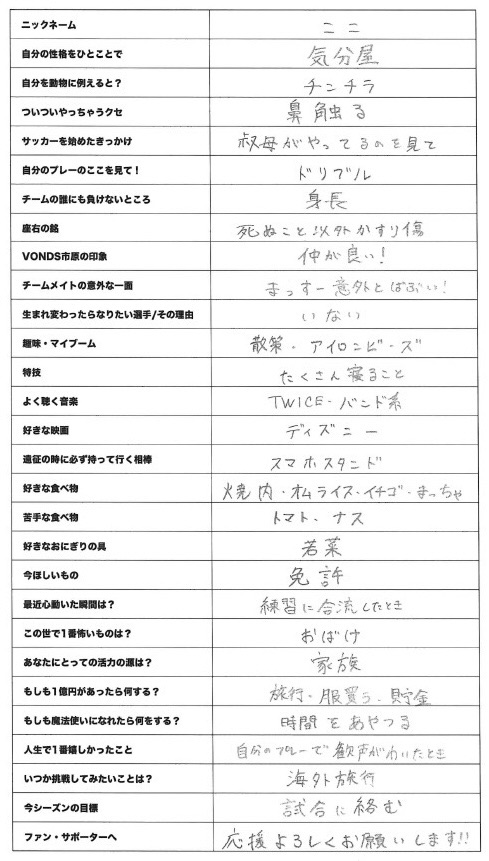 ニックネーム ニコ
自分の性格をひとことで 気分屋
自分を動物に例えると？ チンチラ
ついついやっちゃうクセ 鼻触る
サッカーを始めたきっかけ 叔母がやってるのを見て
自分のプレーのここを見て！ ドリブル
チームの誰にも負けないところ 身長
座右の銘 死ぬこと以外かすり傷
VONDS市原の印象 仲が良い！
チームメイトの意外な一面 まっすー意外とばぶい！
生まれ変わったらなりたい選手/その理由 いない
趣味・マイブーム 散策・アイロンビーズ
特技 たくさん寝ること
よく聴く音楽 TWICE・バンド系
好きな映画 ディズニー
遠征の時に必ず持って行く相棒 スマホスタンド
好きな食べ物 焼肉・オムライス・イチゴ・まっちゃ
苦手な食べ物 トマト、ナス
好きなおにぎりの具 若菜
今ほしいもの 免許
最近心動いた瞬間は？ 練習に合流したとき
この世で1番怖いものは？ おばけ
あなたにとっての活力の源は？ 家族
もしも1億円があったら何する？ 旅行、服買う、貯金
もしも魔法使いになれたら何をする？ 時間をあやつる
人生で1番嬉しかったこと 自分のプレーで歓声がわいたとき
いつか挑戦してみたいことは？ 海外旅行
今シーズンの目標 試合に絡む
ファン・サポーターへ 応援よろしくお願いします!!